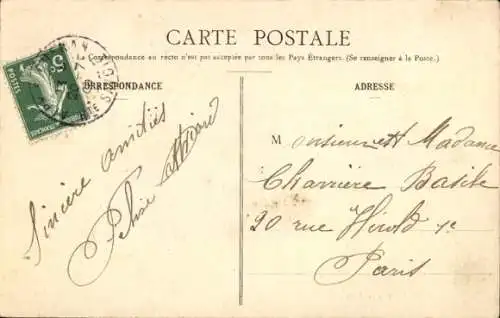 CARTE POSTALE
La Correspondance au recto n'est pas acceptée par tous les Pays Étrangers. (Se renseigner à la Poste.)
CORRESPONDANCE
ADRESSE
5c
POSTES
Sincère amitiés
Monsieur et Madame
Charrière Basile
20 rue Hérold 1e
Paris